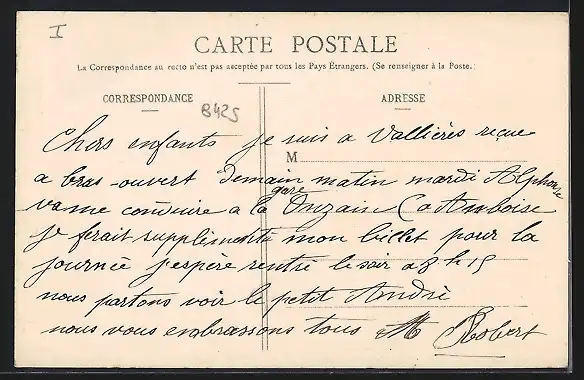 I
CARTE POSTALE
La Correspondance au recto n'est pas acceptée par tous les Pays Étrangers. (Se renseigner à la Poste.)
CORRESPONDANCE
B425
ADRESSE
M
Chers enfants je suis a Vallières reçue
a bras ouvert demain matin mardi Alphonse
va me conduire a la gare Onzain Ca Amboise
je ferait supplémenté mon billet pour la
journée j'espère rentré le soir a 8 h 15
nous partons voir le petit André
nous vous embrassons tous M Robert